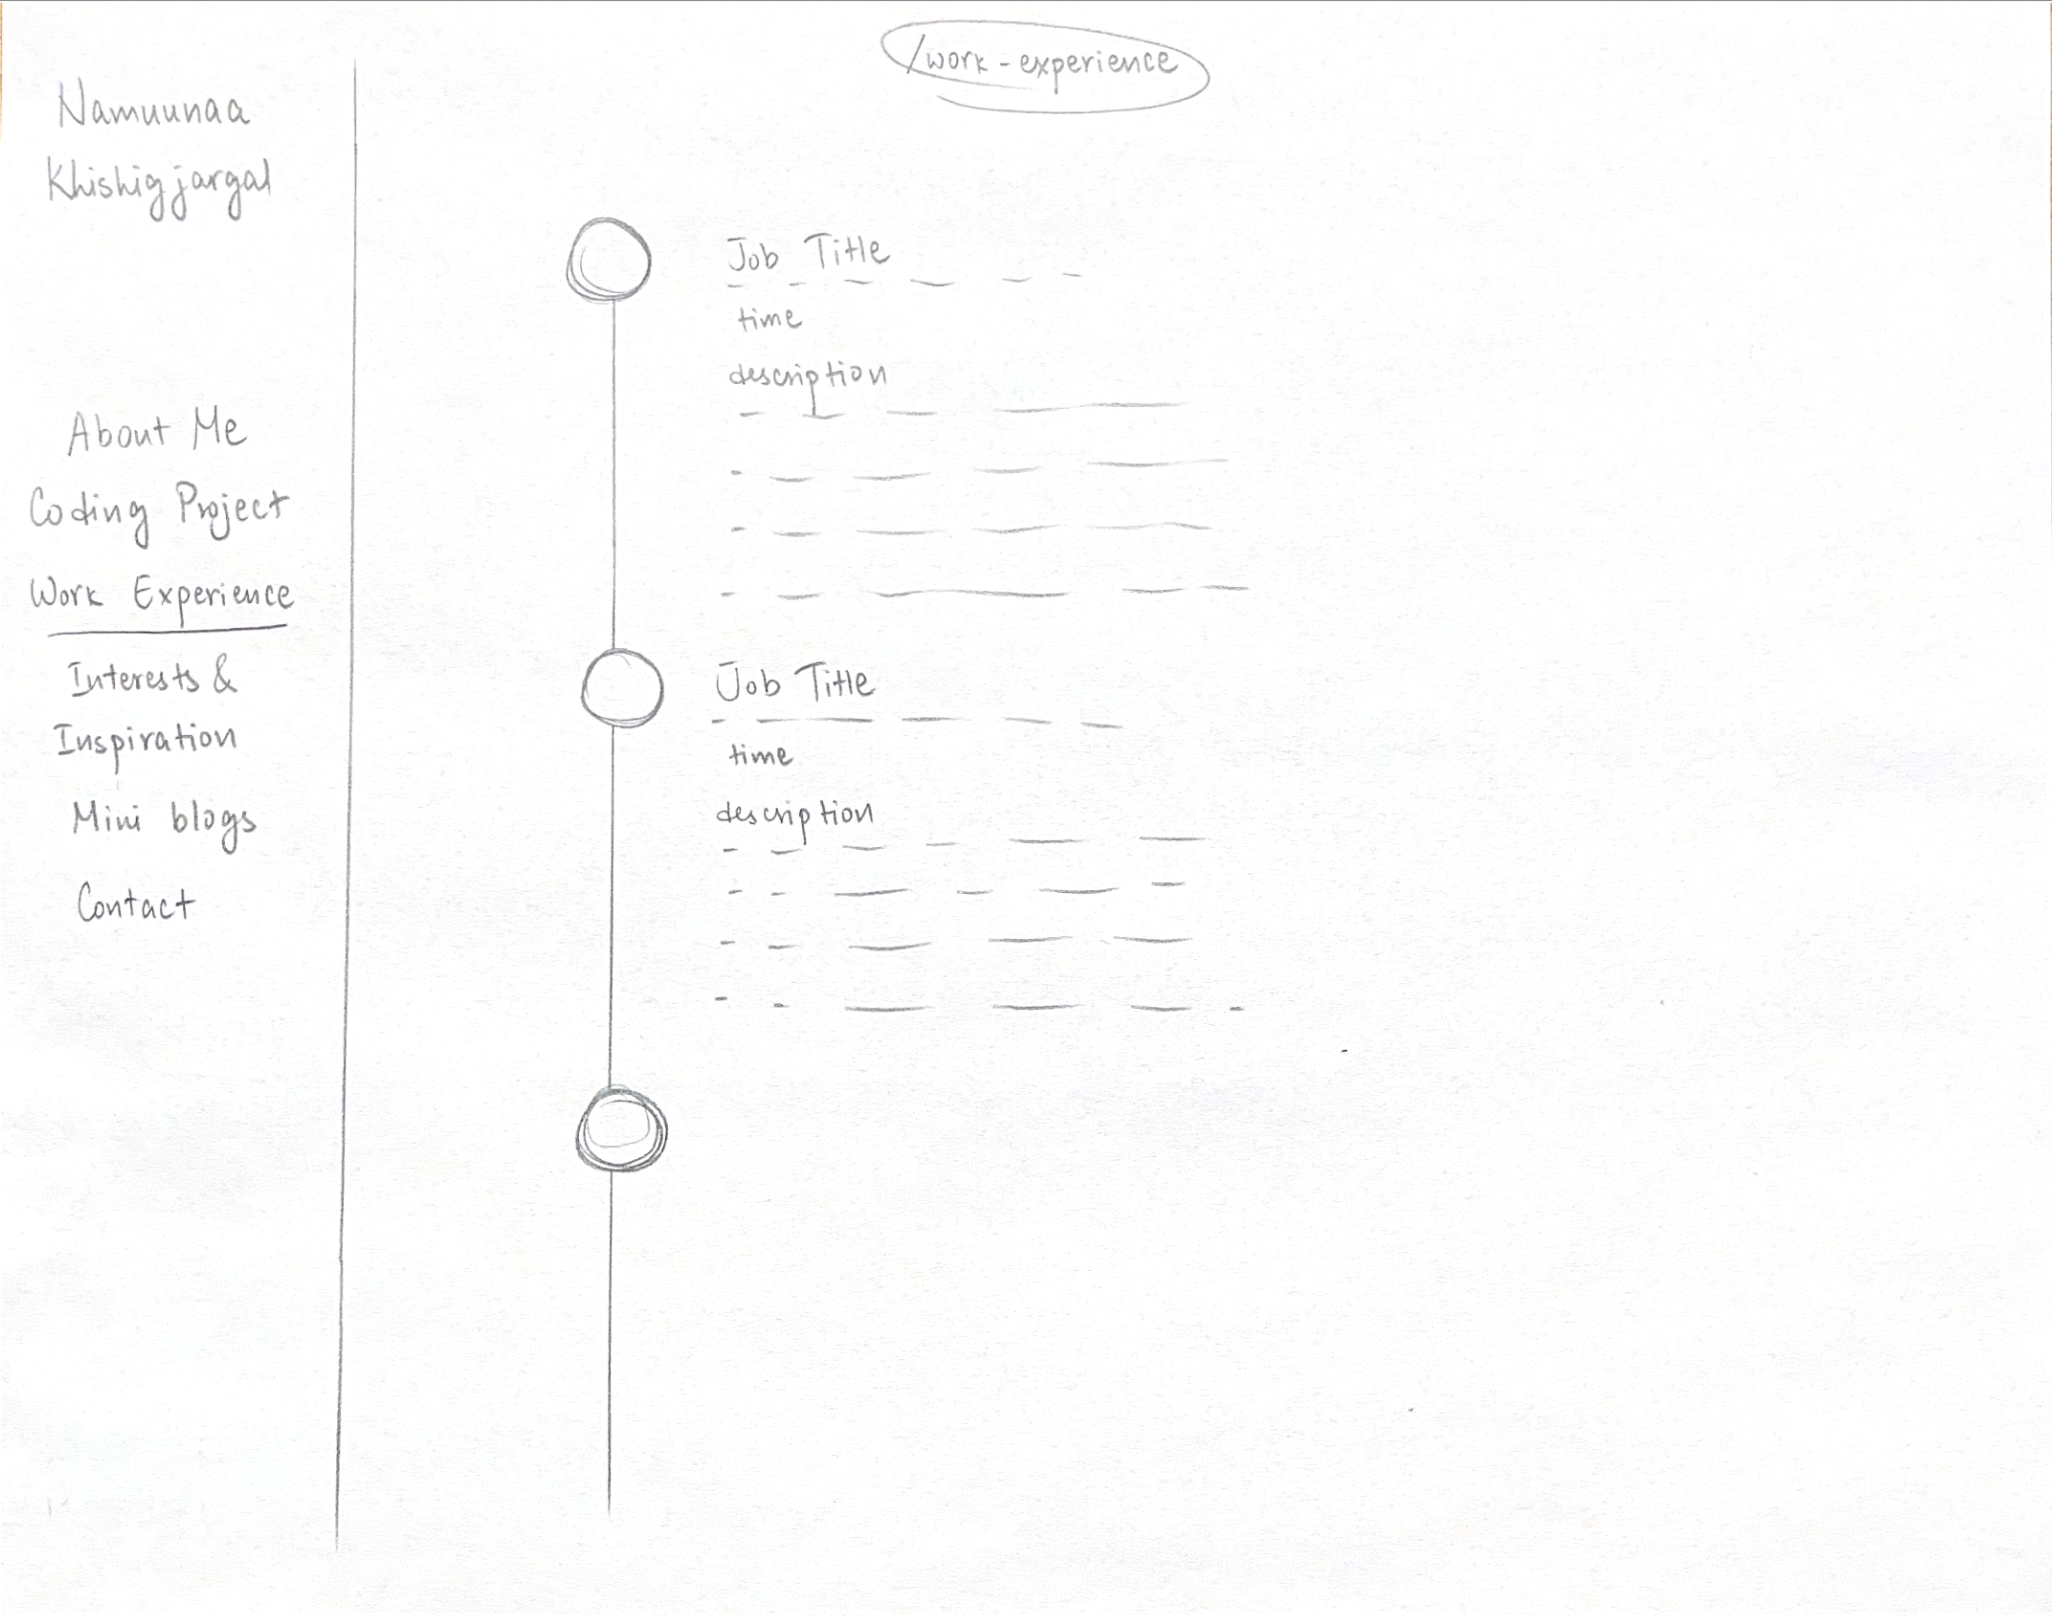 /work-experience
Namuunaa
Khishigjargal
About Me
Coding Project
Work Experience
Interests &
Inspiration
Mini blogs
Contact
Job Title
time
description
Job Title
time
description